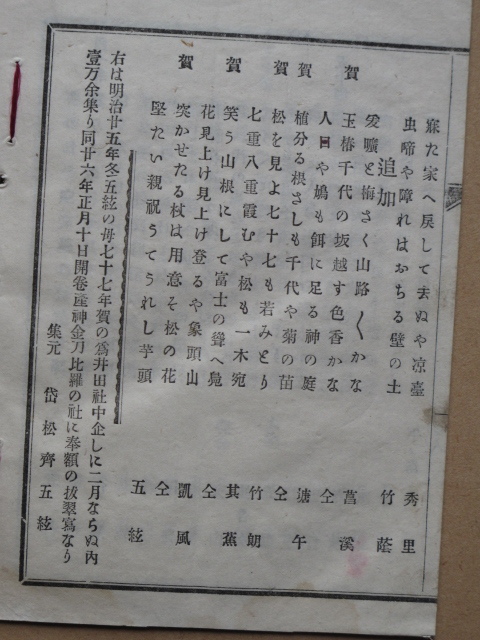 寐た家へ戻して去ぬや凉臺 秀里
虫啼や障ればおちる壁の土 竹蔭
追加
爰曠と梅さく山路〱かな 菖溪
賀 玉椿千代の坂越す色香かな 仝
人日や鳩も餌に足る神の庭 塘午
賀 植分る根ざしも千代や菊の苗 仝
賀 松を見よ七十七も若みどり 竹朗
七重八重霞むや松も一木宛 其蕉
賀 笑う山根にして富士の聳へ鳧 仝
花見上け見上け登るや象頭山 凱風
賀 突かせたる杖は用意ぞ松の花 仝
堅たい親祝うてうれし芋頭 五絃
右は明治廿五年冬五絃の母七十七年賀の爲井田社中企しに二月ならぬ内
壹万余集り同廿六年正月十日開卷產神金刀比羅の社に奉額の拔翠寫なり
集元 岱松齊五絃